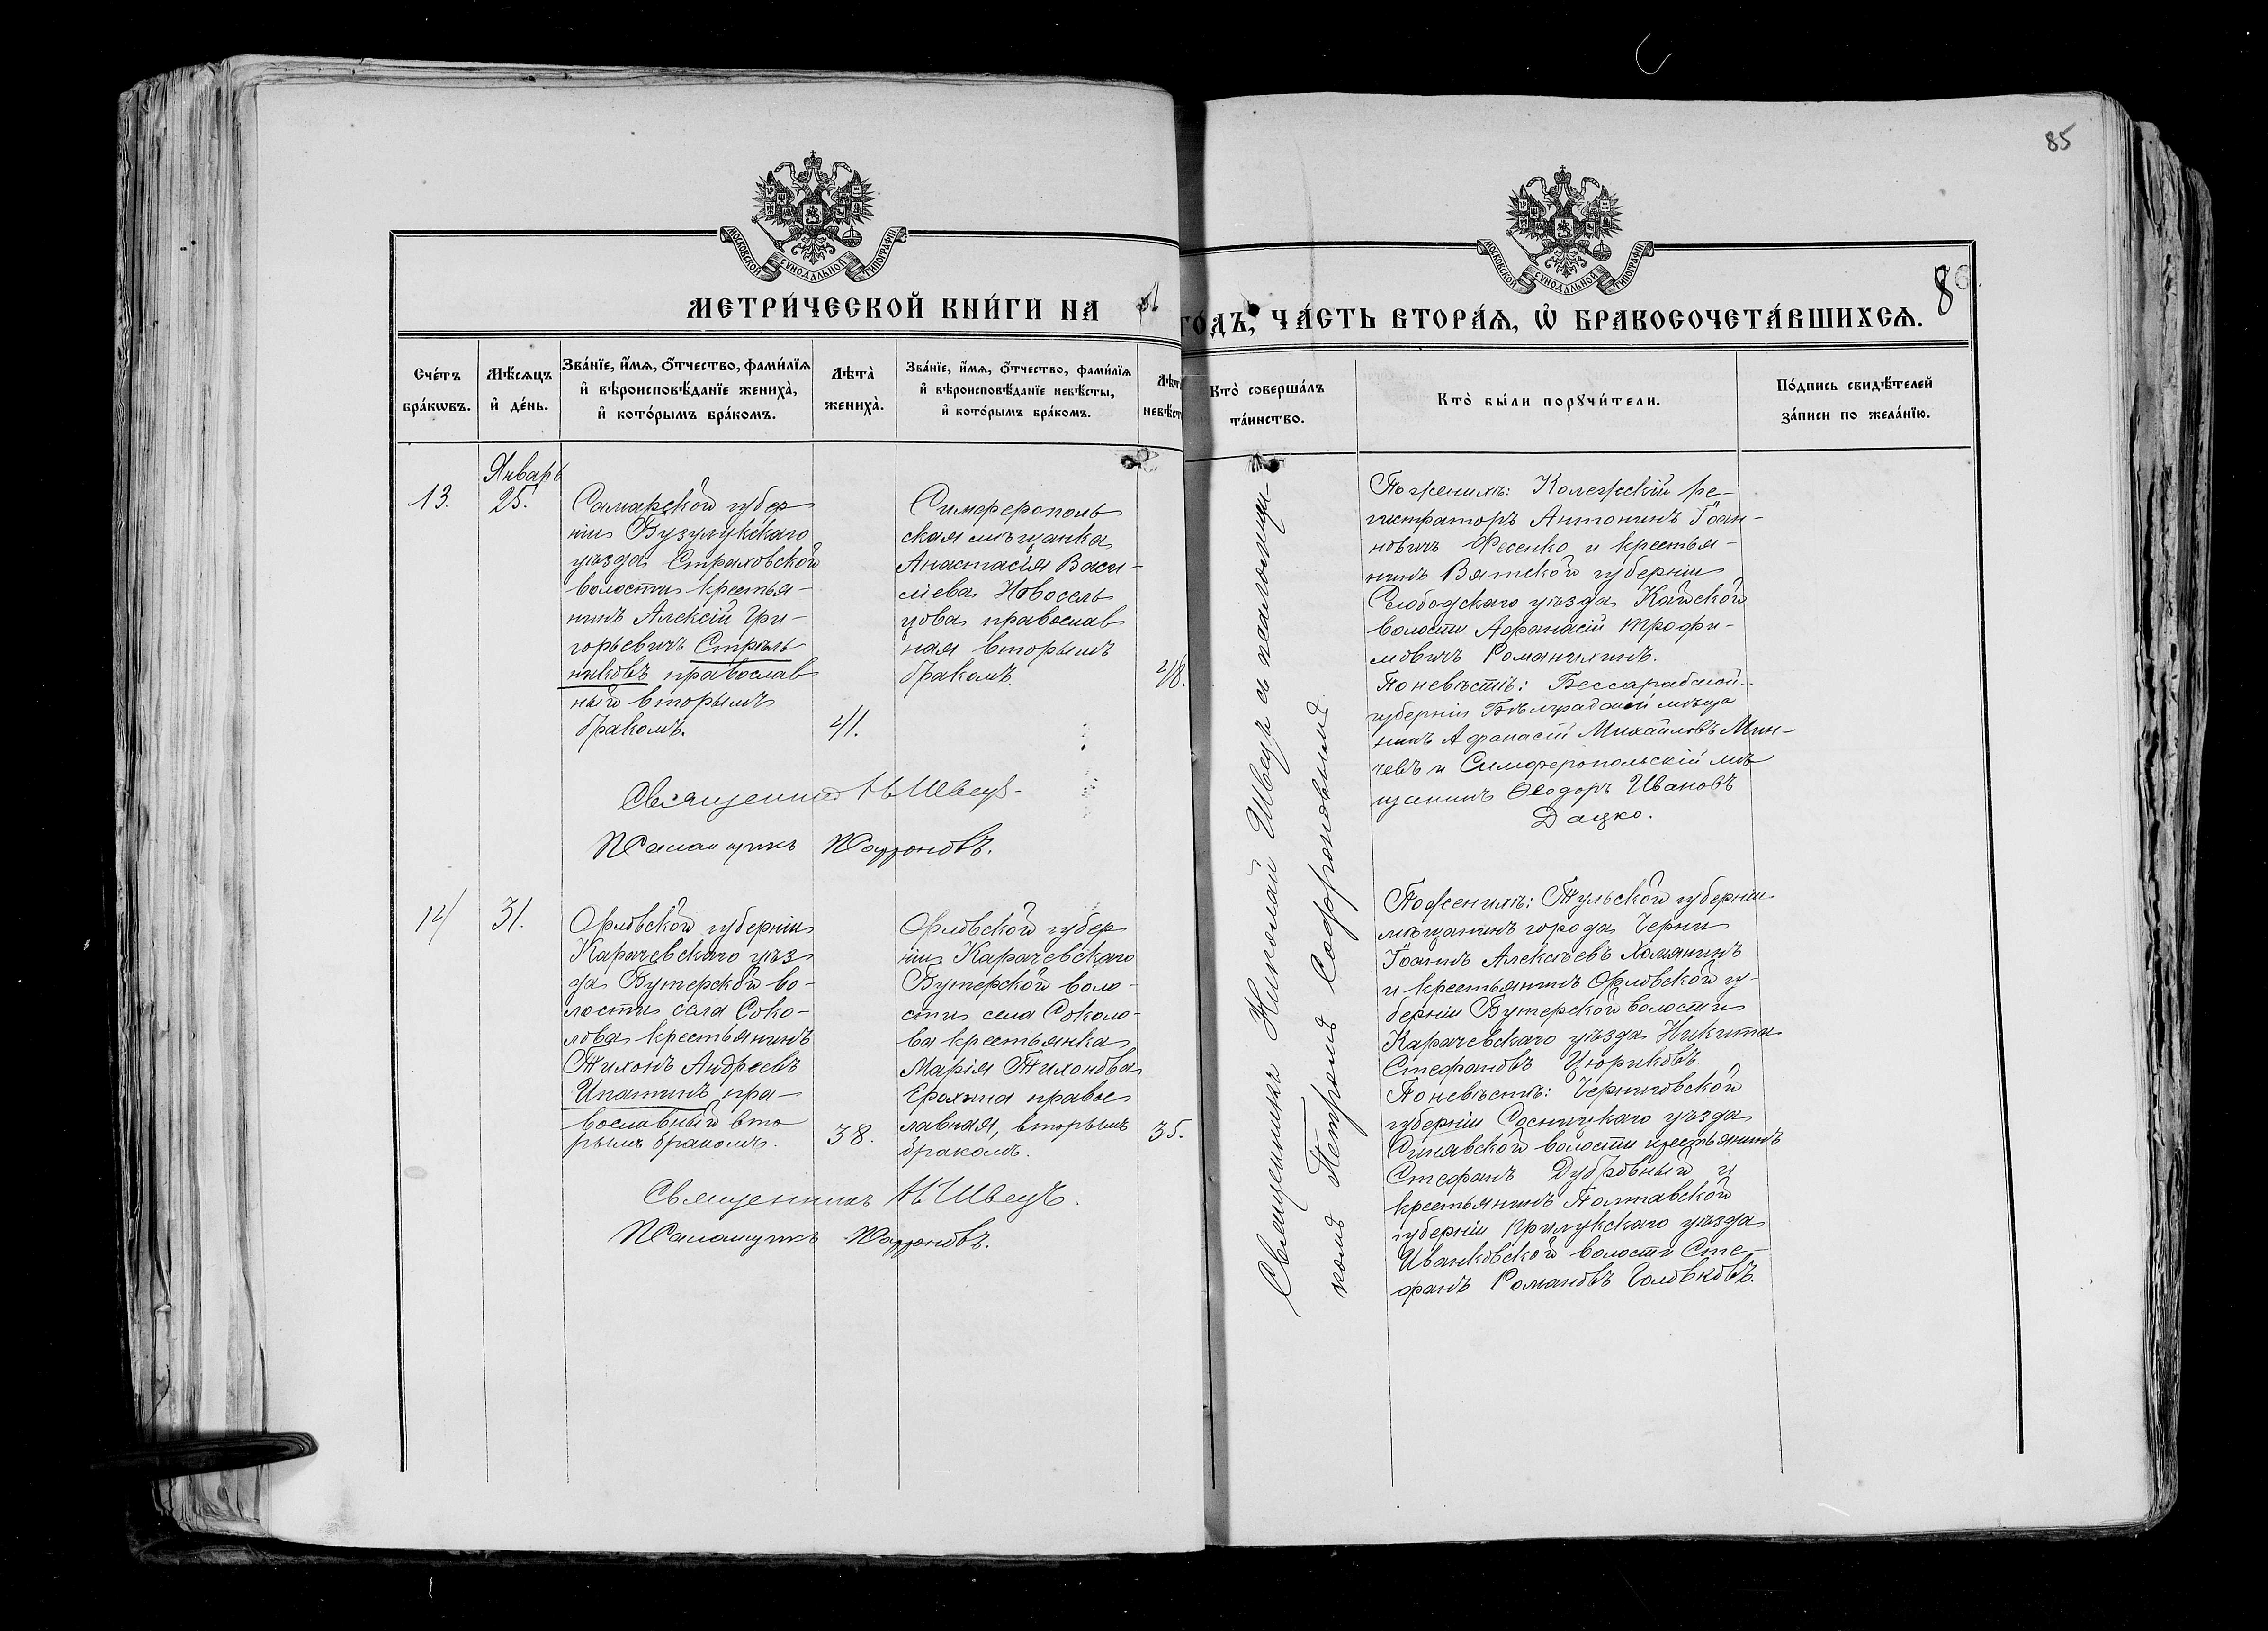 85
МОСКОВСКОЙ СУНОДАЛЬНОЙ ТИПОГРАФІИ
МОСКОВСКОЙ СУНОДАЛЬНОЙ ТИПОГРАФІИ
МЕТРИ́ЧЕСКОЙ КНИ́ГИ НА
ГО́ДЪ, ЧА́СТЬ ВТОРА́Ѧ, Ѡ҆ БРАКОСОЧЕТА́ВШИХСѦ.
8
Сче́тъ бра́кѡвъ.
Мѣ́сѧцъ и҆ де́нь.
Зва́нїе, и҆́мѧ, ѻ҆́тчество, фами́лїѧ и҆ вѣроисповѣ́данїе жениха̀, и҆ кото́рымъ бра́комъ.
Лѣта̀ жениха̀.
Зва́нїе, и҆́мѧ, ѻ҆́тчество, фами́лїѧ и҆ вѣроисповѣ́данїе невѣ́сты, и҆ кото́рымъ бра́комъ.
Лѣт невѣст
Кто̀ соверша́лъ та́инство.
Кто̀ бы́ли порꙋчи́тели.
По́дпись свидѣ́телей за́писи по жела́нїю.
Январь
13.
25.
Самарской губер
ніи Бузулукскаго
уѣзда Страховской
волости крестья-
нинъ Алексій Гри-
горьевичъ Стрѣль
никовъ православ
ный вторымъ
бракомъ.
41.
Симферополь
ская мѣщанка
Анастасія Васи-
ліева Новосель
цова православ
ная вторымъ
бракомъ.
48.
Священникъ Н Швецъ
Псаломщикъ Софроновъ.
Священникъ Николай Швецъ съ псаломщи-
комъ Петромъ Софроновымъ
По женихѣ: Колежскій ре-
гистраторъ Антонинъ Іоан-
новичъ Фесенко и крестья-
нинъ Вятской губерніи
Слободскаго уѣзда Кайской
волости Афанасій Трофи-
мовичъ Романихинъ.
По невѣстѣ: Бессарабской
губерніи Бѣлградскій мѣща
нинъ Афанасій Михайловъ Мин-
чевъ и Симферопольскій мѣ
щанинъ Ѳеодоръ Ивановъ
Дацко.
14
31.
Орловской губерніи
Карачевскаго уѣз
да Бутерской во-
лости села Соко-
лова крестьянинъ
Тихонъ Андреевъ
Ипатинъ пра-
вославный вто
рымъ бракомъ.
38.
Орловской губер
ніи Карачевскаго
Бутерской воло-
сти села Соколо-
ва крестьянка
Марія Тихонова
Ерохина правос
лавная, вторымъ
бракомъ.
35.
Священникъ Н Швецъ.
Псаломщикъ Софроновъ.
По женихѣ: Тульской губерніи
мѣщанинъ города Черни
Іоаннъ Алексѣевъ Холянинъ
и крестьянинъ Орловской гу-
берніи Бутерской волости
Карачевскаго уѣзда Никита
Стефановъ Цюриковъ.
По невѣстѣ: Черниговской
губерніи Сосницкаго уѣзда
Синявской волости крестьянинъ
Стефанъ Дубровный и
крестьянинъ Полтавской
губерніи Прилукскаго уѣзда
Иванковской волости Сте-
фанъ Романовъ Головковъ.